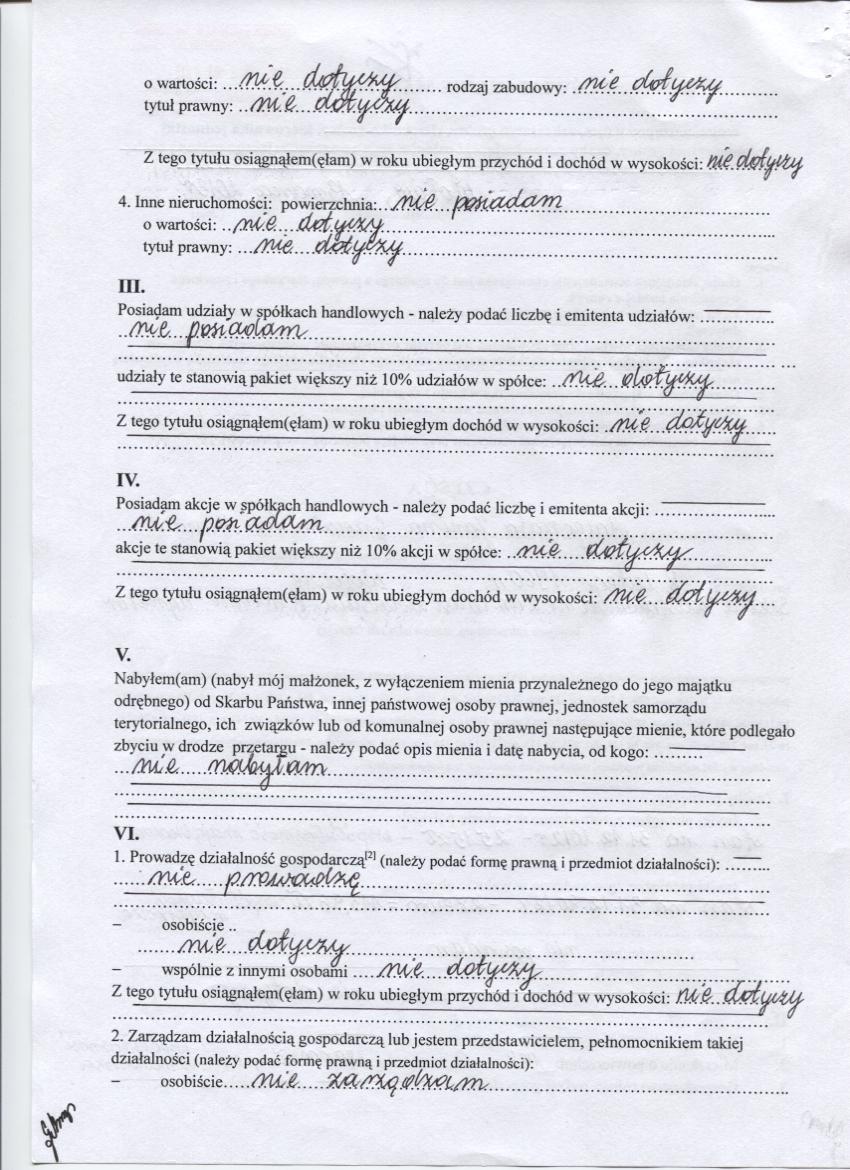 o wartości: ...nie dotyczy........ rodzaj zabudowy: .nie dotyczy..........
tytuł prawny: ..nie dotyczy..........
Z tego tytułu osiągnąłem(ęłam) w roku ubiegłym przychód i dochód w wysokości: nie dotyczy
4. Inne nieruchomości: powierzchnia:..nie posiadam..........
o wartości: ..nie dotyczy..........
tytuł prawny: ...nie dotyczy..........
III.
Posiadam udziały w spółkach handlowych - należy podać liczbę i emitenta udziałów: ..............
..nie posiadam..........
udziały te stanowią pakiet większy niż 10% udziałów w spółce: ..nie dotyczy..........
Z tego tytułu osiągnąłem(ęłam) w roku ubiegłym dochód w wysokości: ..nie dotyczy.....
IV.
Posiadam akcje w spółkach handlowych - należy podać liczbę i emitenta akcji: ..............
...nie posiadam..........
akcje te stanowią pakiet większy niż 10% akcji w spółce: ..nie dotyczy..........
Z tego tytułu osiągnąłem(ęłam) w roku ubiegłym dochód w wysokości: .nie dotyczy....
V.
Nabyłem(am) (nabył mój małżonek, z wyłączeniem mienia przynależnego do jego majątku
odrębnego) od Skarbu Państwa, innej państwowej osoby prawnej, jednostek samorządu
terytorialnego, ich związków lub od komunalnej osoby prawnej następujące mienie, które podlegało
zbyciu w drodze przetargu - należy podać opis mienia i datę nabycia, od kogo: .........
...nie nabyłam..........
VI.
1. Prowadzę działalność gospodarczą[2] (należy podać formę prawną i przedmiot działalności): .........
.....nie prowadzę..........
– osobiście ..
......nie dotyczy..........
– wspólnie z innymi osobami ....nie dotyczy..........
Z tego tytułu osiągnąłem(ęłam) w roku ubiegłym przychód i dochód w wysokości: nie dotyczy
2. Zarządzam działalnością gospodarczą lub jestem przedstawicielem, pełnomocnikiem takiej
działalności (należy podać formę prawną i przedmiot działalności):
– osobiście.....nie zarządzam..........